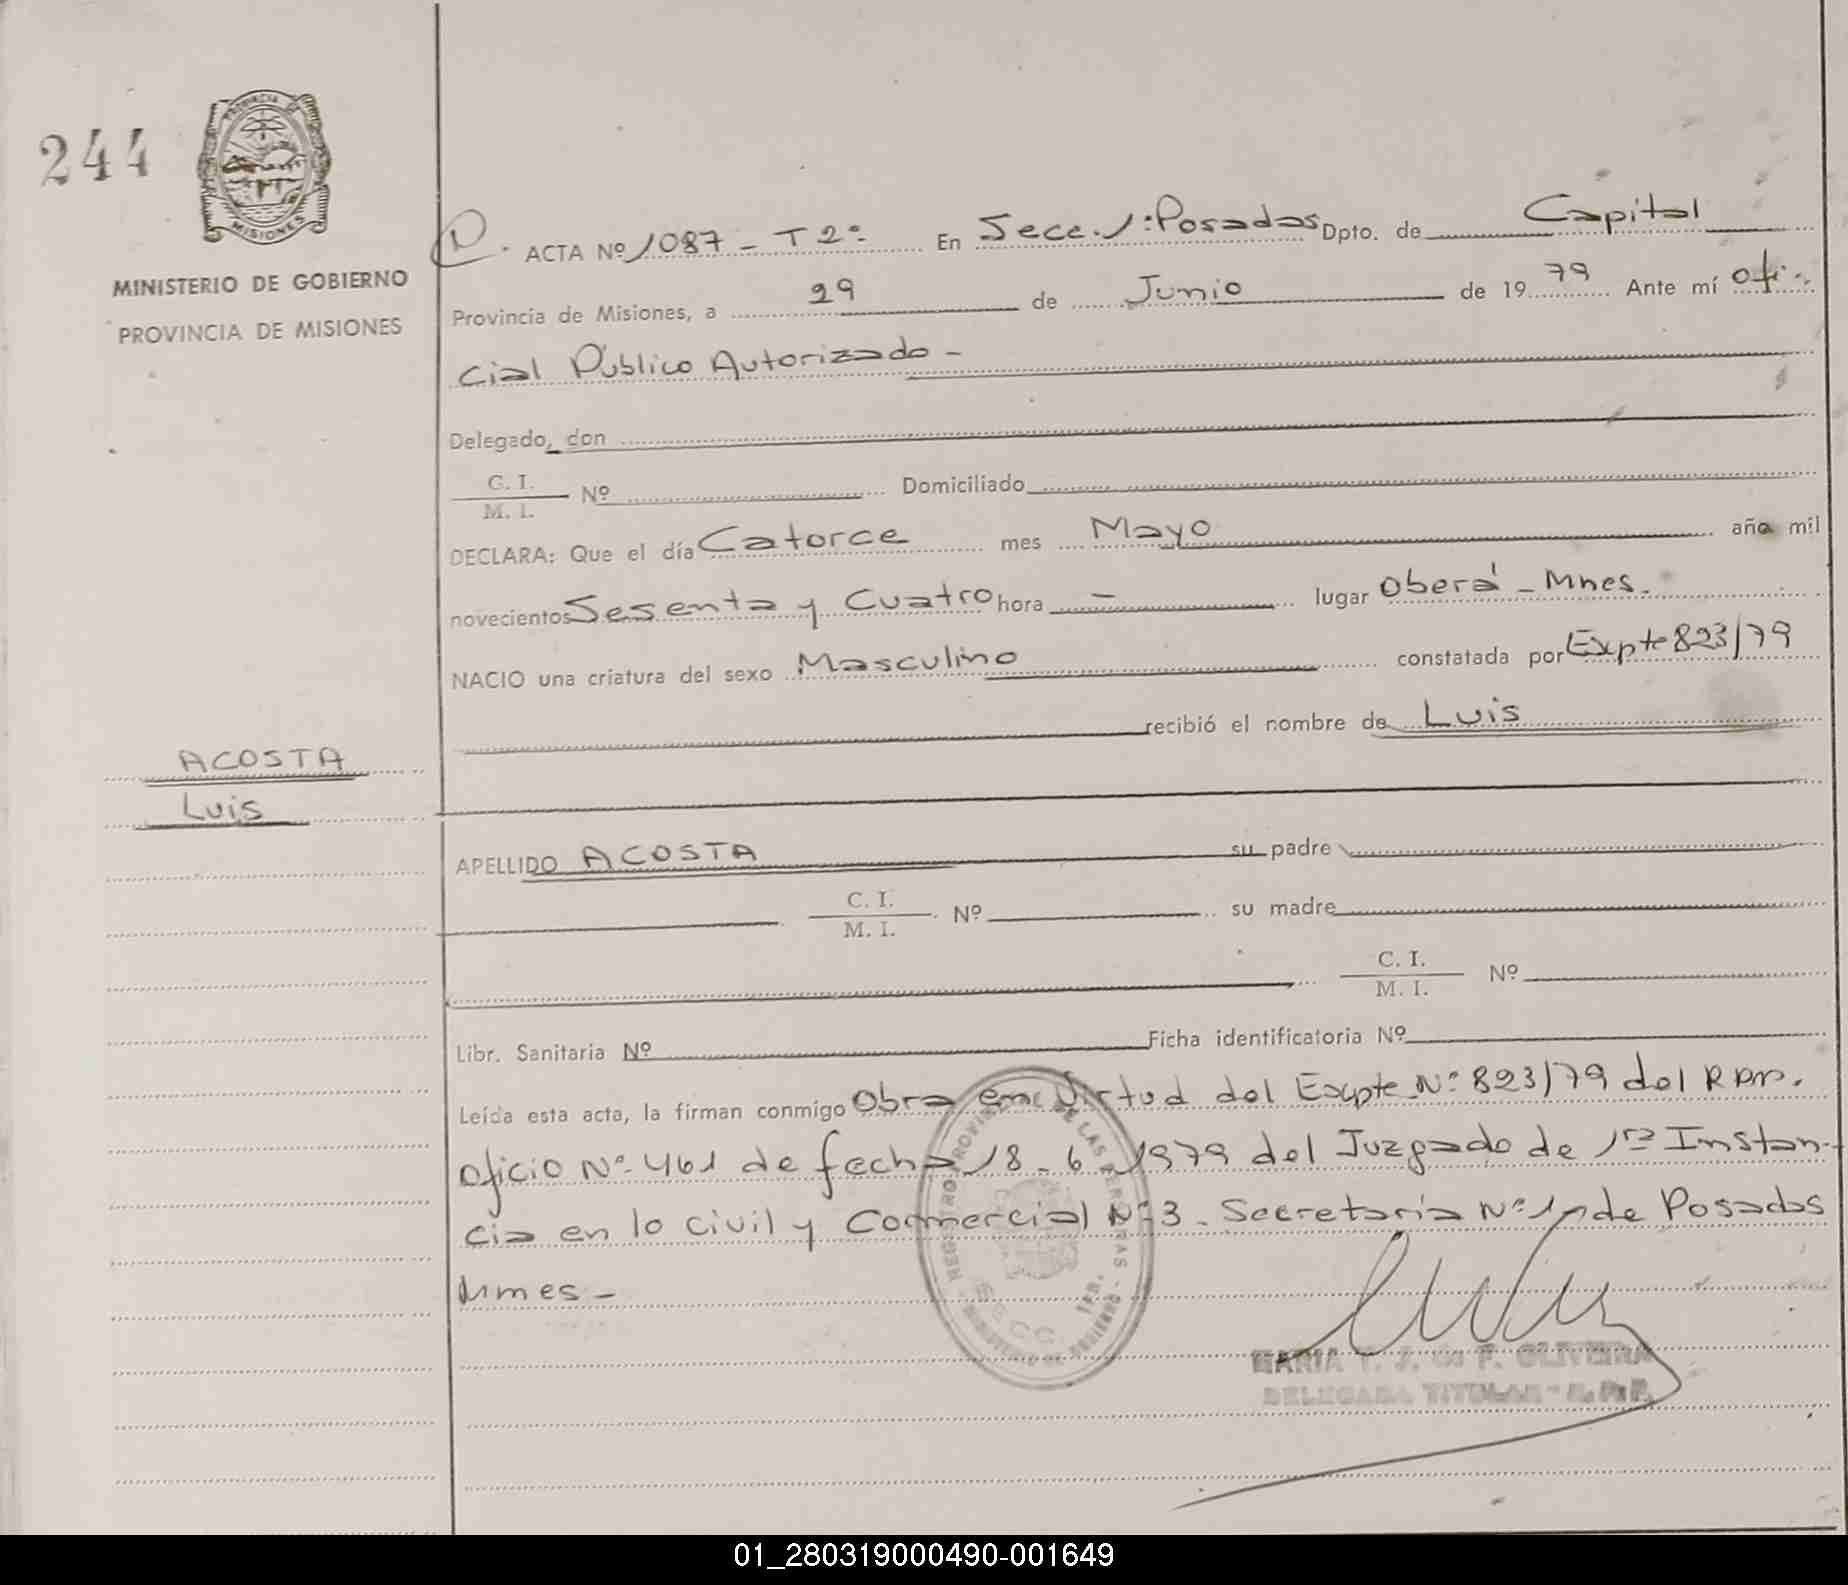 244
PROVINCIA DE
MISIONES
MINISTERIO DE GOBIERNO
PROVINCIA DE MISIONES
ACOSTA
Luis
ACTA Nº 1087 - T 2º En Secc. 1ª Posadas Dpto. de Capital
Provincia de Misiones, a 29 de Junio de 1979 Ante mí Ofi-
cial Público Autorizado -
Delegado, don
C. I.
M. I. Nº Domiciliado
DECLARA: Que el día Catorce mes Mayo año mil
novecientos Sesenta y Cuatro hora - lugar Oberá - Mnes.
NACIO una criatura del sexo Masculino constatada por Expte 823/79
recibió el nombre de Luis
APELLIDO ACOSTA su padre
C. I.
M. I. Nº su madre
C. I.
M. I. Nº
Libr. Sanitaria Nº Ficha identificatoria Nº
Leída esta acta, la firman conmigo Obra en Virtud del Expte Nº 823/79 del RPP.
Oficio Nº 461 de fecha 18-6-1979 del Juzgado de 1ra Instan-
cia en lo civil y Commercial Nº 3. Secretaria Nº 1 de Posadas
Mnes -
REGISTRO PROVINCIAL DE LAS PERSONAS - MINISTERIO DE GOBIERNO
SECC. 1RA.
MARIA T. J. de F. OLIVEIRA
DELEGADA TITULAR - R. P. P.
01_280319000490-001649